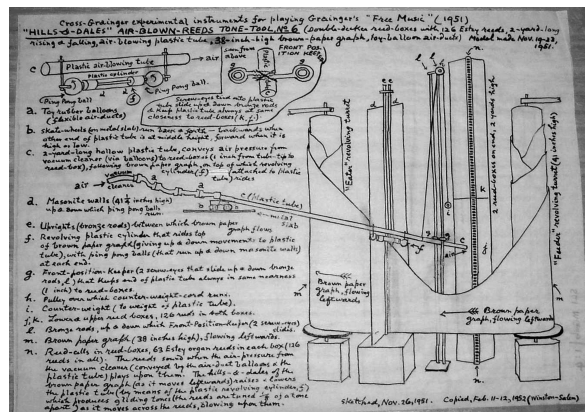 Cross-Grainger experimental instruments for playing Grainger's "Free Music" (1951)
"HILLS & DALES" AIR-BLOWN-REEDS TONE-TOOL, No 6 (Double-decker reed-boxes with 126 Estey reeds, 2-yard-long
rising & falling, air-blowing plastic tube, 38-inch-high brown-paper graph, toy-balloon air-ducts) Model made Nov. 19-23,
1951.
Plastic air-blowing tube
air
Plastic cylinder
Ping Pong ball
Ping Pong ball.
seen from above
FRONT POSITION KEEPER
Plastic tube
Screw-eyes tied onto plastic
tube slide up & down bronze rods
& keep plastic tube always at same
closeness to reed-boxes (k, j).
a. Toy rubber balloons
(flexible air-ducts)
b. Skate-wheels (on metal slab) run back & forth — backwards when
other end of plastic tube is at middle height, forward when it is
high or low.
c. 2-yard-long hollow plastic tube, conveys air pressure from
vacuum cleaner (via balloons) to reed-boxes (1 inch from tube-tip to
reed-box), following brown paper graph, on top of which revolving
cylinder (f) (attached to plastic
tube) rides
vacuum cleaner
air
(plastic tube)
metal slab
d. Masonite walls (41½ inches high)
up & down which ping pong balls
run.
e. Uprights (bronze rods) between which brown paper
graph flows
f. Revolving plastic cylinder that rides top
of brown paper graph (giving up & down movements to plastic
tube), with ping pong balls (that run up & down masonite walls)
at each end.
g. Front-position-Keeper (2 screw-eyes that slide up & down bronze
rods, l) that keeps end of plastic tube always in same nearness
(1 inch) to reed-boxes.
h. Pulley over which counter-weight-cord runs.
i. Counter-weight (to weight of plastic tube).
j, k. Lower & upper reed boxes, 126 reeds in both boxes.
l. Bronze rods, up & down which Front-Position-Keeper (2 screw-eyes)
slides.
m. Brown paper graph (38 inches high), flowing leftwards.
n. Reed-cells in reed-boxes, 63 Estey organ reeds in each box (126
reeds in all). The reeds sound when the air-pressure from
the vacuum cleaner (conveyed by the air-duct balloons & the
plastic tube) plays upon them. The hills-&-dales of the
brown paper graph (as it moves leftwards) raises & lowers
the plastic tube (by means of the plastic revolving cylinder, f)
which produces gliding tones (the reeds are tuned ⅛ of a tone
apart) as it moves across the reeds, blowing upon them.
"Eater" revolving turret
2 reed-boxes on ends, 2 yards high
"Feeder" revolving turret (41 inches high)
Brown paper
graph, flowing
leftwards
Brown paper
graph, flowing leftwards.
Sketched, Nov. 26, 1951.
Copied, Feb. 11-12, 1952 (Winston-Salem)